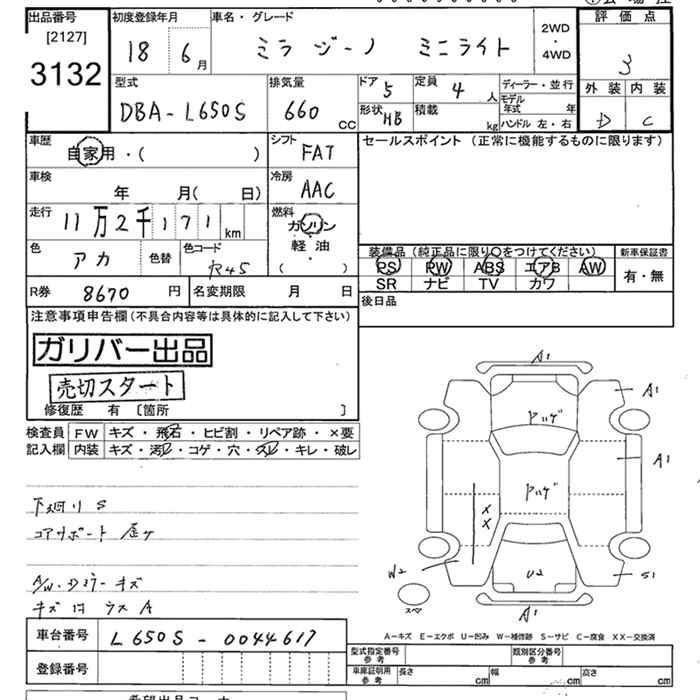 出品番号
[2127]
3132
初度登録年月
18 6月
車名・グレード
ミラ ジーノ ミニライト
2WD
・
4WD
評価点
3
型式
DBA-L650S
排気量
660 CC
ドア 5
定員 4 人
形状 HB
積載 kg
ディーラー・並行
モデル年式 年
ハンドル 左・右
外装 内装
D C
車歴
自家用・( )
シフト
FAT
セールスポイント (正常に機能するものに限ります)
車検
年 月( 日)
冷房
AAC
走行
11万2千171km
燃料
ガソリン
軽油
・
( )
色
アカ
色替
色コード
R45
装備品 (純正品に限り○をつけてください)
新車保証書
PS PW ABS エアB AW
SR ナビ TV カワ
有・無
R券 8670 円
名変期限 月 日
後日品
注意事項申告欄(不具合内容等は具体的に記入して下さい)
ガリバー出品
売切スタート
修復歴 有 〔箇所 〕
検査員 FW キズ・飛石・ヒビ割・リペア跡・×要
記入欄 内装 キズ・汚レ・コゲ・穴・スレ・キレ・破レ
下廻り S
コアサポート 歪ケ
A/W・Dミラーキズ
キズ凹ウスA
A1
A1
ヤハゲ
A1
ヤハゲ
X
X
W2
U2
S1
スペ
A1
A-キズ E-エクボ U-凹み W-補修跡 S-サビ C-腐食 XX-交換済
車台番号 L650S-0044617
登録番号
型式指定番号
参考
類別区分番号
参考
車庫証明用
参考
長さ cm 幅 cm 高さ cm
希望出品コーナー